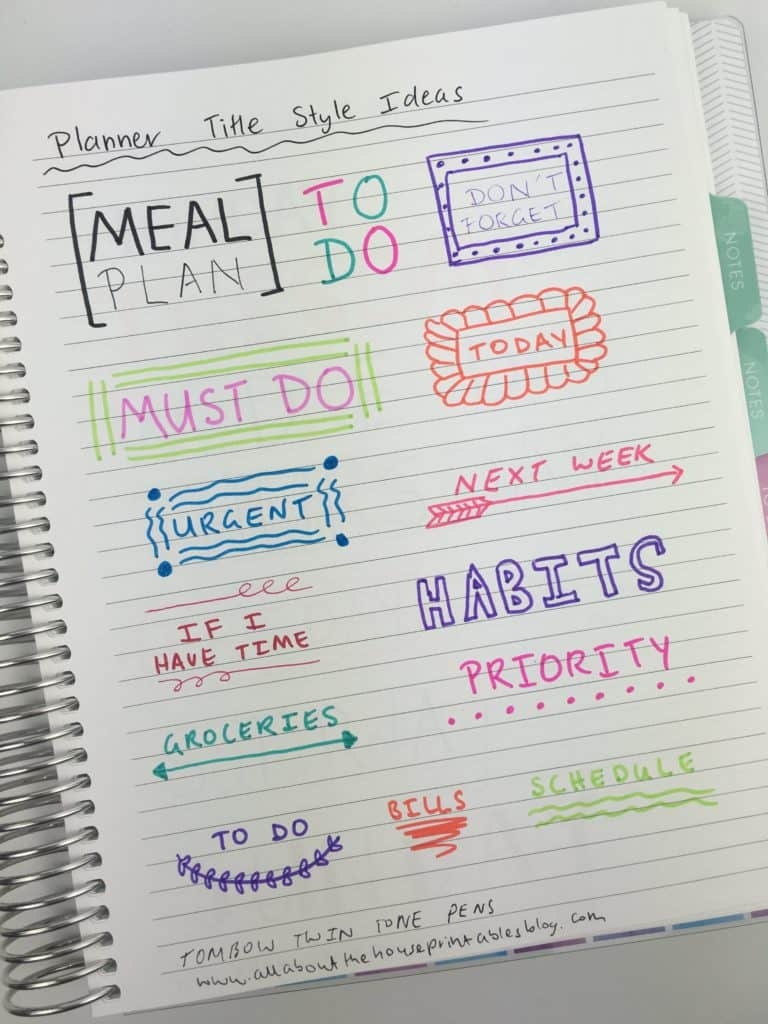 Planner Title Style Ideas
MEAL
PLAN
TO
DO
DON'T
FORGET
MUST DO
TODAY
URGENT
NEXT WEEK
IF I
HAVE TIME
HABITS
PRIORITY
GROCERIES
TO DO
BILLS
SCHEDULE
TOMBOW TWIN TONE PENS
www.allaboutthehouseprintablesblog.com
NOTES
NOTES